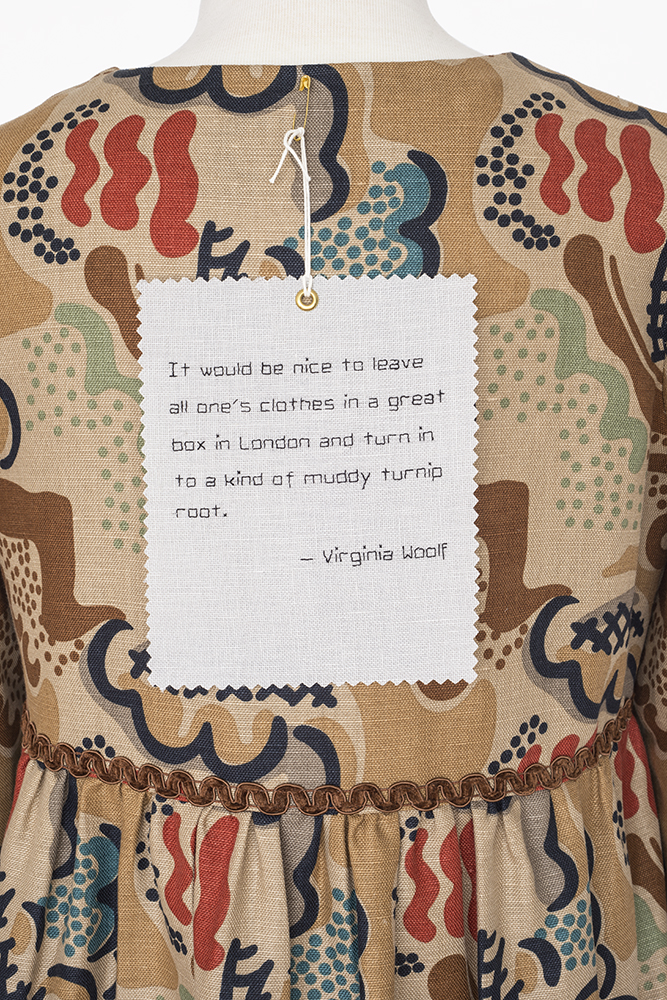 It would be nice to leave
all one's clothes in a great
box in London and turn in
to a kind of muddy turnip
root.
– Virginia Woolf